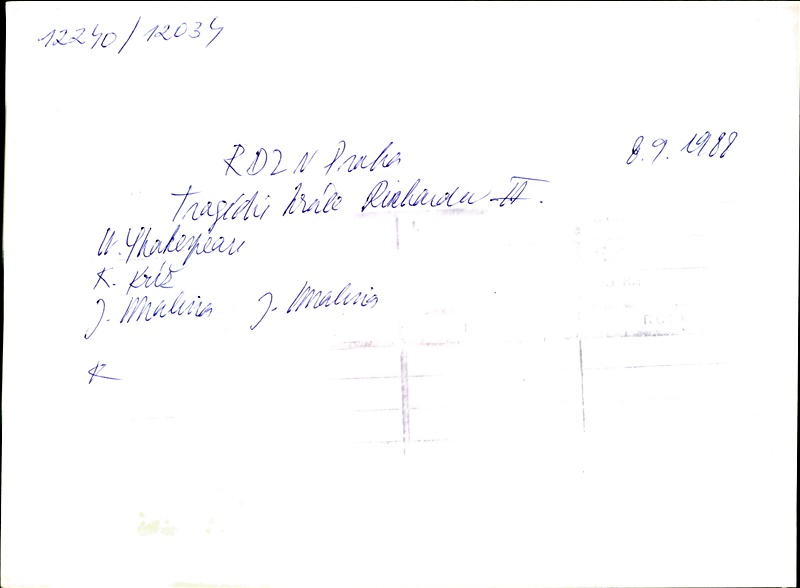 12240/12034
8.9.1988
RDZN Praha
Tragédie krále Richarda II.
W. Shakespeare
K. Kříž
J. Malina J. Malina
K